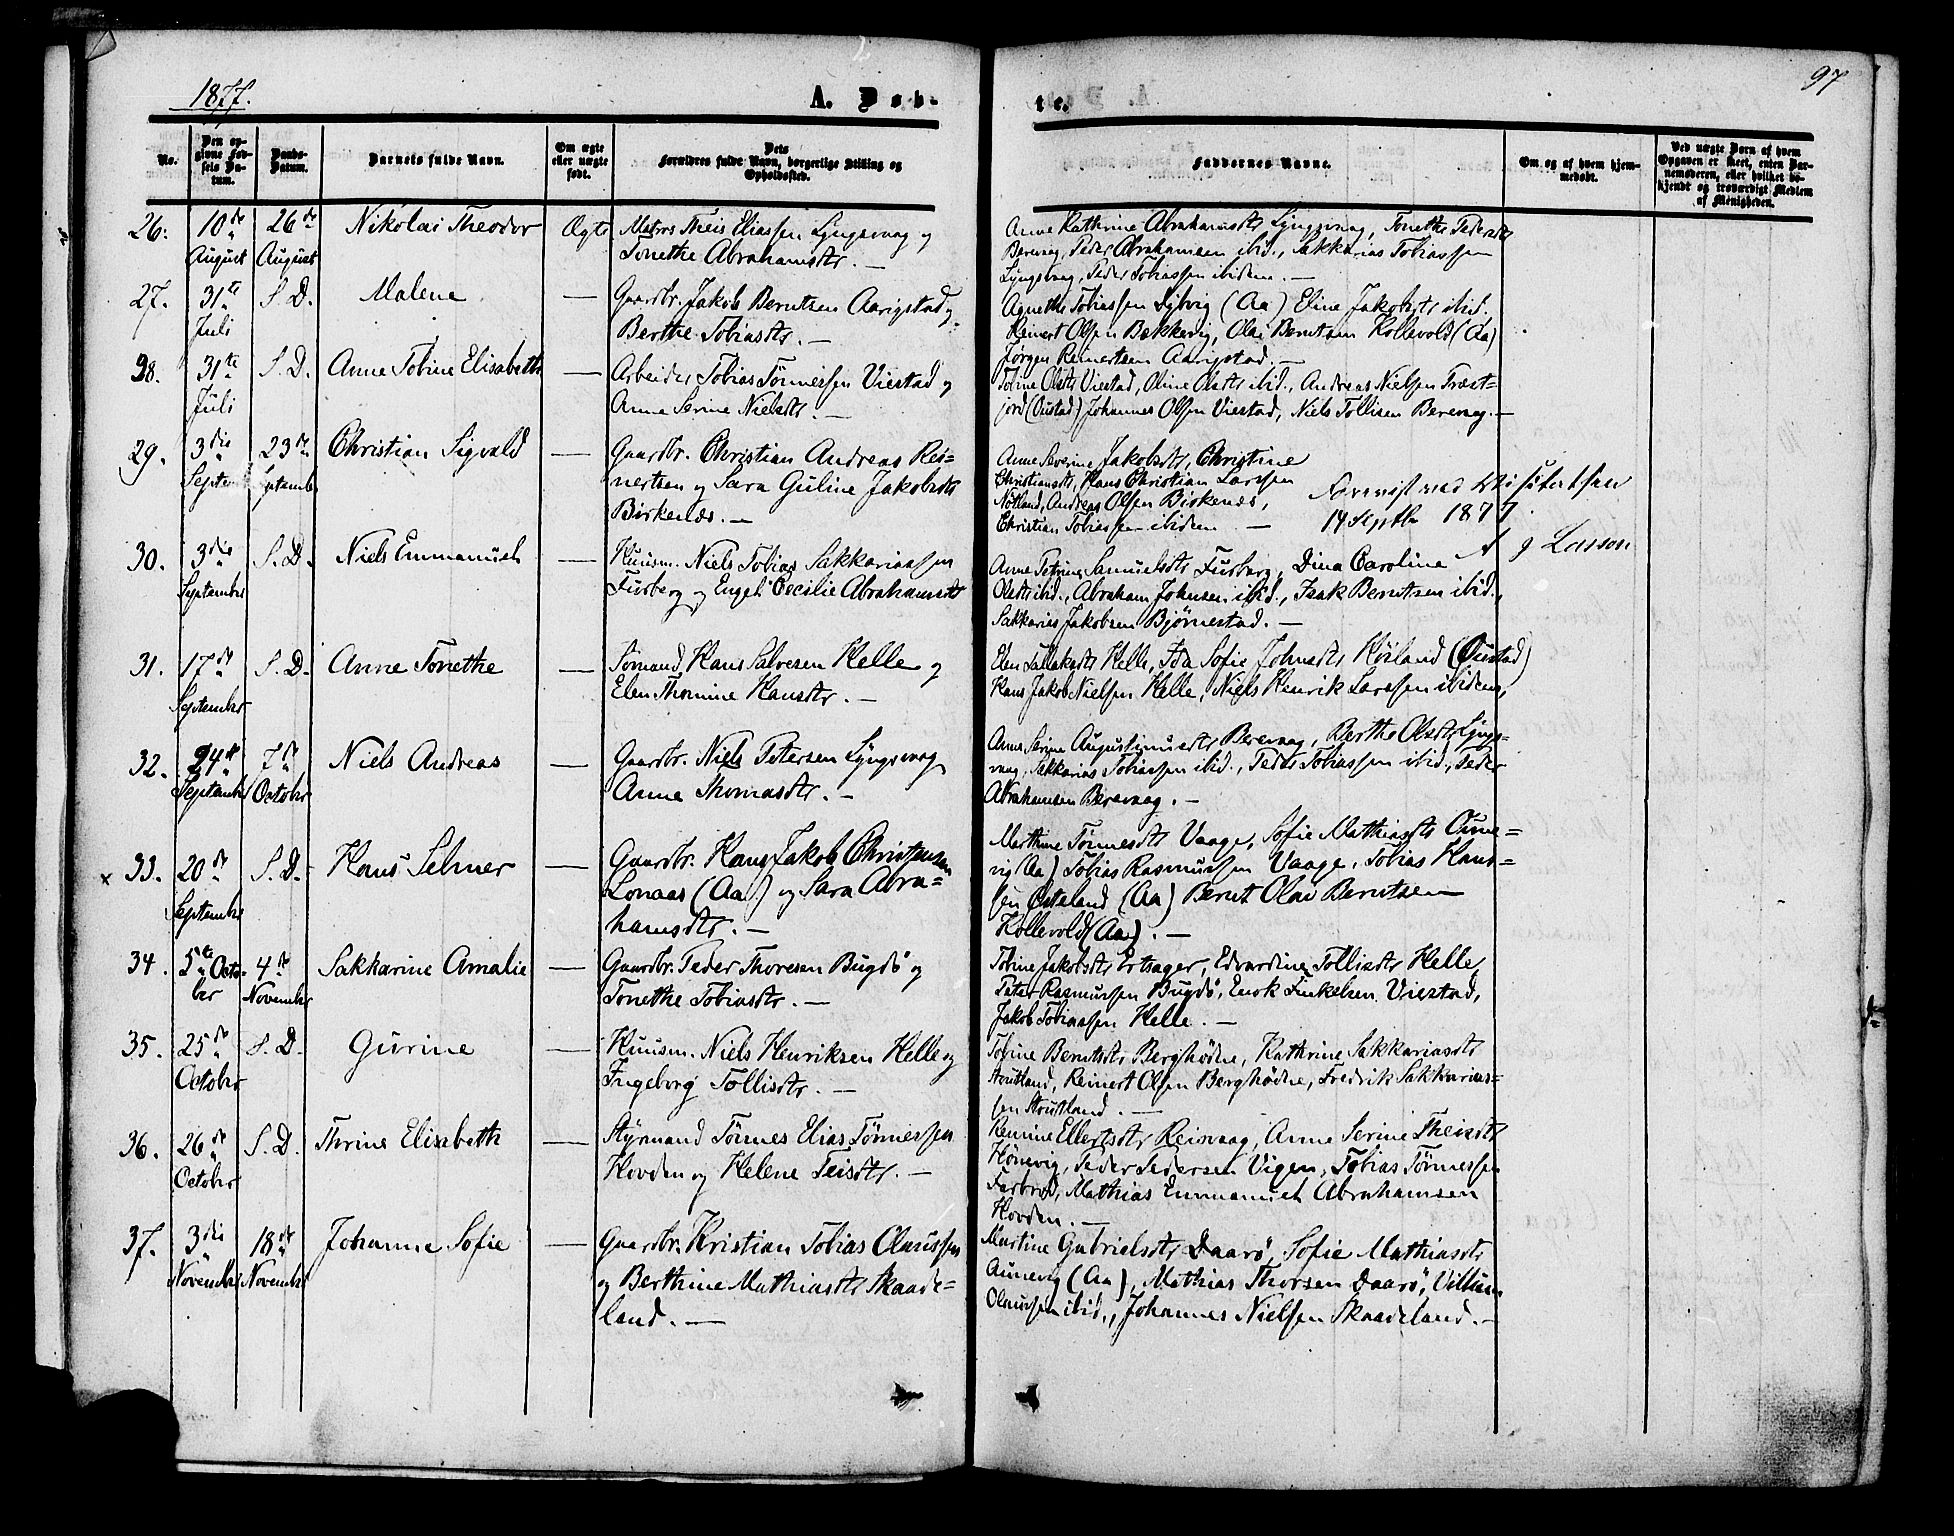 1877.
A. Døb-
te.
97
No.
Den op-
givne Fød-
sels Da-
tum.
Daabs-
Datum.
Barnets fulde Navn.
Om ægte
eller uægte
født.
Dets
Forældres fulde Navn, borgerlige Stilling og
Opholdssted.
Faddernes Navne.
Om og af hvem hjem-
medøbt.
Ved uægte Børn af hvem
Opgaven er skeet, enten Bar-
nemoderen, eller hvilket be-
kjendt og troværdigt Medlem
af Menigheden.
26. 10de August 26de August Nikolai Theodor Ægte
Matros Theis Eliassen Lyngsvaag og
Tonethe Abrahamsdtr. —
Anne Kathrine Abrahamsdtr Lyngsvaag, Tonethe Pedersdtr
Berevaag, Peder Abrahamsen ibid., Sakkarias Tobiassen
Lyngsvaag, Peder Tobiassen ibidem. —
27. 31te Juli S. D. Malene —
Gaardbr. Jakob Berntsen Aarigstad og
Berthe Tobiasdtr. —
Agnethe Tobiassen (Aa) Eline Jakobsdtr ibid.
Reinert Olsen Bekkevig, Olai Berntsen Kollevold (Aa)
Jørgen Reinertsen Aarigstad. —
28. 31te Juli S. D. Anne Tobine Elisabeth —
Arbeider Tobias Tønnessen Viestad og
Anne Serine Nielsdtr. —
Tobine Olsdtr Viestad, Oline Olsdtr ibid., Andreas Nielsen Træst-
jord (Øiestad) Johannes Olsen Viestad, Niels Tollisen Berevaag. —
29. 3die September 23de September Christian Sigvald —
Gaardbr. Christian Andreas Rei-
nertsen og Sara Guline Jakobsdtr
Birkenæs. —
Anne Severine Jakobsdtr, Christine
Christiansdtr, Hans Christian Larssen
Nøtland, Andreas Olsen Birkenæs,
Christian Tobiassen ibidem —
14 Septbr 1877.
30. 3die September S. D. Niels Emmanuel —
Huusm. Niels Tobias Sakkariassen
Furberg og Engel Cecilie Abrahamsdtr
Anne Petrine Samuelsdtr Furberg, Dina Caroline
Olsdtr ibid., Abraham Johnsen ibid., Isak Berntsen ibid.,
Sakkarias Jakobsen Bjørnestad. —
31. 17de September S. D. Anne Tonethe —
Sømand Hans Salvesen Helle og
Elen Thomine Hansdtr. —
Elen Tallaksdtr Helle, Ida Sofie Johnsdtr Høiland (Øiestad)
Hans Jakob Nielsen Helle, Niels Henrik Larssen ibidem,
32. 24de September 7de October Niels Andreas —
Gaardbr. Niels Petersen Lyngsvaag
Anne Thomasdtr. —
Anne Serine Augustinusdtr Berevaag, Berthe Olsdtr Lyngs-
vaag, Sakkarias Tobiassen ibid., Peder Tobiassen ibid., Peder
Abrahamsen Berevaag. —
x 33. 20de September S. D. Hans Selmer —
Gaardbr. Hans Jakob Christensen
Lonaas (Aa) og Sara Abra-
hamsdtr. —
Marthine Tønnesdtr Vaage, Sofie Mathiasdtr Øune-
vig (Aa) Tobias Rasmussen Vaage, Tobias Hans-
sen (Aa) Bernt Olai Berntsen
Kollevold (Aa). —
34. 5te October 4de November Sakkarine Amalie —
Gaardbr. Peder Thorsen Bugdø og
Tonethe Tobiasdtr. —
Tobine Jakobsdtr Ertsager, Edvardine Tollisdtr Helle,
Peter Rasmussen Bugdø, Enok Finkelsen Viestad,
Jakob Tobiassen Helle. —
35. 25de October S. D. Gurine —
Huusm. Niels Henriksen Helle og
Ingeborg Tollisdtr. —
Tobine Berntsdtr Berghødne, Kathrine Sakkariasdtr
Stoutland, Reinert Olsen Berghødne, Fredrik Sakkarias-
sen Stoutland. —
36. 26de October S. D. Thrine Elisabeth —
Styrmand Tønnes Elias Tønnessen
Hovden og Helene Teisdtr. —
Remine Ellertsdtr Reirvaag, Anne Serine Theisdtr
Hønevig, Peder Pedersen Vigen, Tobias Tønnessen
Farbrød, Mathias Emmanuel Abrahamsen
Hovden. —
37. 3die November 18de November Johanne Sofie —
Gaardbr. Kristian Tobias Olaussen
og Berthine Mathiasdtr Skaade-
land. —
Martine Gabrielsdtr Daarø, Sofie Mathiasdtr
Aunevig (Aa), Mathias Thorsen Daarø, Villum
Olaussen ibid., Johannes Nielsen Skaadeland. —